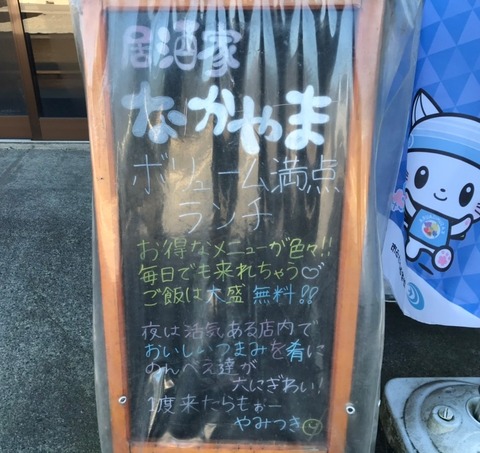 居酒家
なかやま
ボリューム満点
ランチ
お得なメニューが色々!!
毎日でも来れちゃう♡
ご飯は大盛無料!!
夜は活気ある店内で
おいしいつまみを肴に
のんべえ達が
大にぎわい!
1度来たらもぉー
やみつき